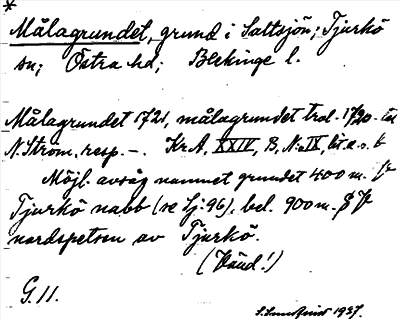 *
Målagrundet, grund i Saltsjön; Tjurkö
sn; Östra hd; Blekinge l.
Målagrundet 1721, målagrundet trol. 1720-
N. Ström, resp. –. Kr.A, XXIV, B, N:o IX, lit. a. o. b
Möjl. avsåg namnet grundet 400 m.
Tjurkö nabb (se Lj: 96), bel. 900 m.
nordspetsen av Tjurkö.
(Vänd!)
G. 11.
1937.